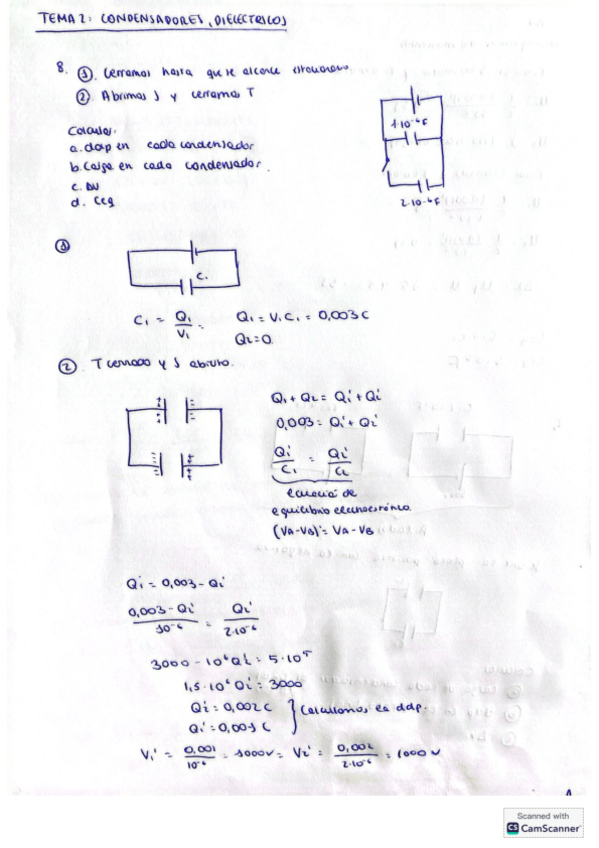 TEMA 2: CONDENSADORES, DIELECTRICOS
8. ① Cerramos hasta que se alcance estacionario.
② Abrimos S y cerramos T
Calcular.
a. ddp en cada condensador
b. Carga en cada condensador.
c. ΔU
d. Ceq
1·10⁻⁶F
2·10⁻⁶F
①
C₁
C₁ = Q₁/V₁ = Q₁ = V₁C₁ = 0,003 C
Q₂ = 0.
② T cerrado y S abierto.
Q₁ + Q₂ = Q₁' + Q₂'
0,003 = Q₁' + Q₂'
Q₁'/C₁ = Q₂'/C₂
ecuación de
equilibrio electrostático.
(VA-VB)' = VA - VB
Q₁' = 0,003 - Q₂'
0,003 - Q₂'/10⁻⁶ = Q₂'/2·10⁻⁶
3000 - 10⁶Q₂' = 5·10⁵
1,5·10⁶ Q₂' = 3000
Q₂' = 0,002 C
Q₁' = 0,001 C } Calculamos la ddp.
V₁' = 0,001/10⁻⁶ = 1000 V = V₂' = 0,002/2·10⁻⁶ = 1000 V
Scanned with
CS CamScanner